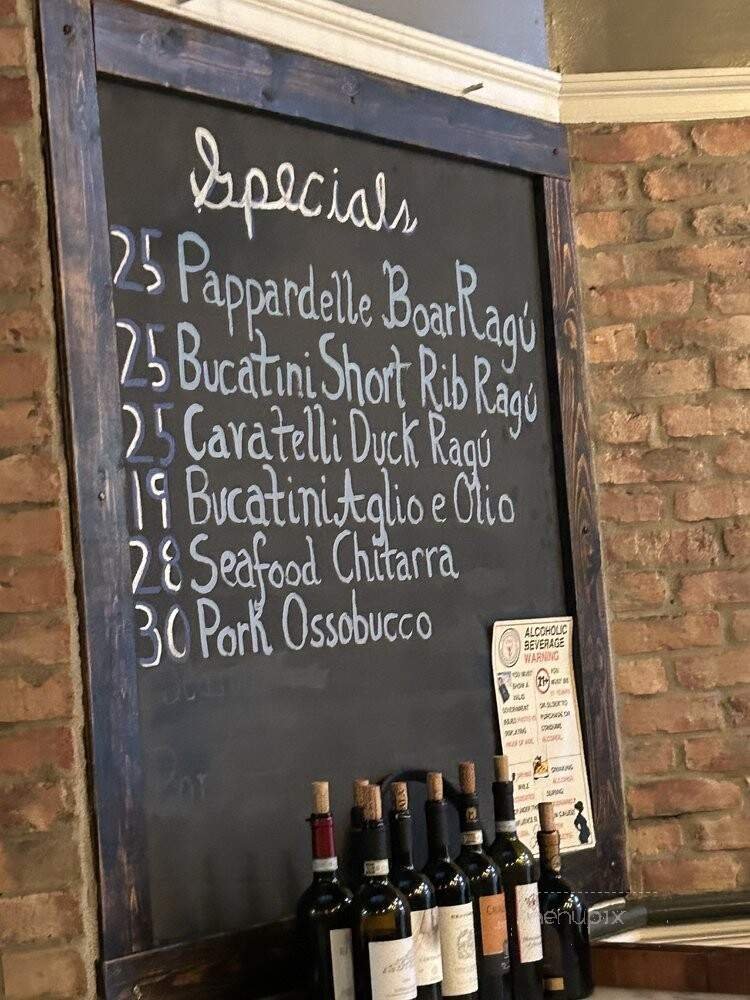 Specials
25 Pappardelle Boar Ragú
25 Bucatini Short Rib Ragú
25 Cavatelli Duck Ragú
19 Bucatini Aglio e Olio
28 Seafood Chitarra
30 Pork Ossobucco
ALCOHOLIC
BEVERAGE
WARNING
YOU MUST
SHOW A
VALID
GOVERNMENT
PROOF OF AGE
21+
YOU
MUST BE
21 YEARS
OR OLDER TO
PURCHASE OR
CONSUME
ALCOHOL
DRINKING
ALCOHOL
DURING
menupix